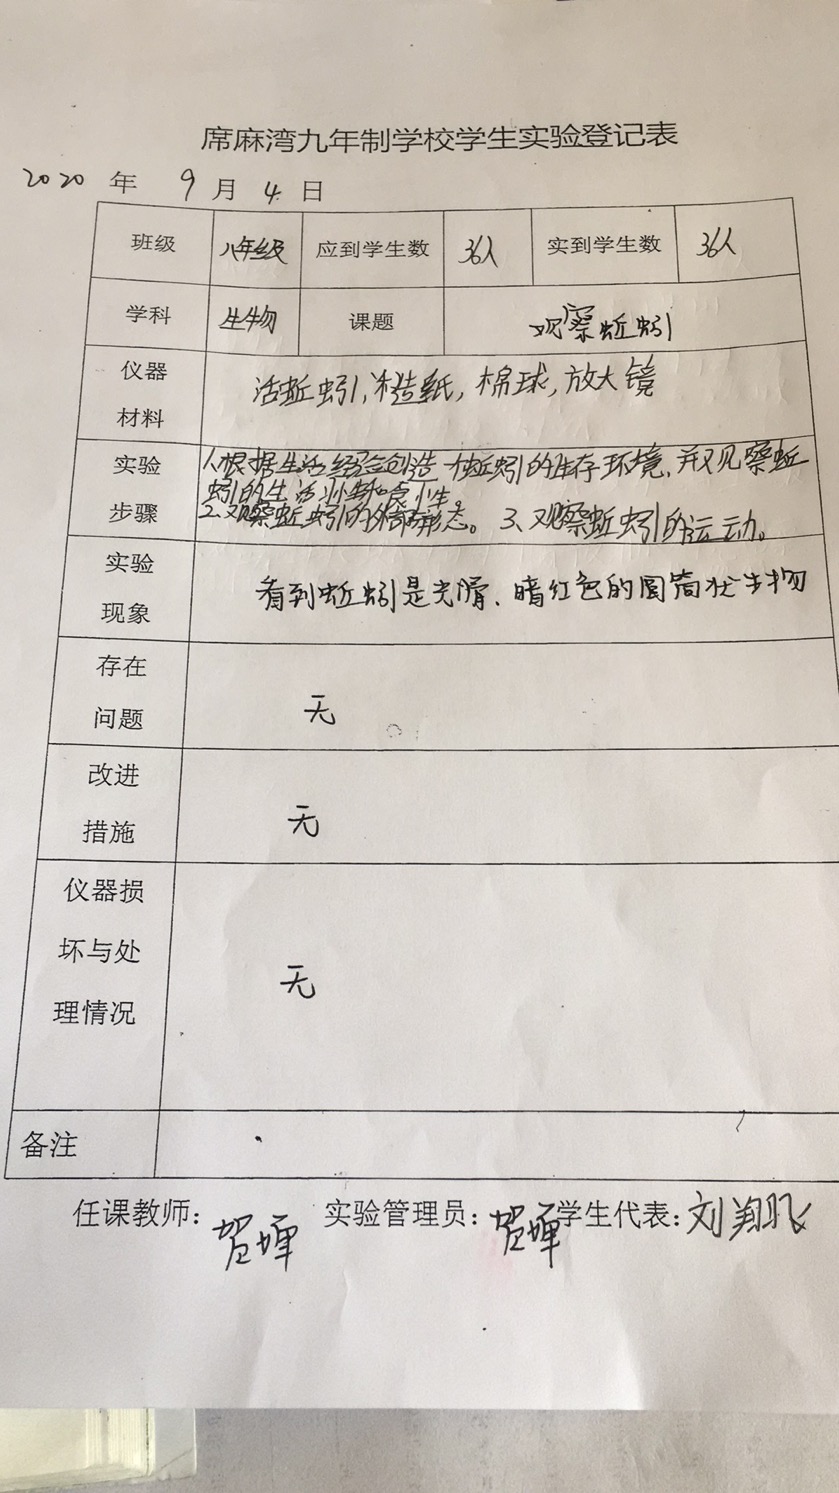 席麻湾九年制学校学生实验登记表
2020 年 9 月 4 日
班级 八年级 应到学生数 36人 实到学生数 36人
学科 生物 课题 观察蚯蚓
仪器
材料
活蚯蚓,糙纸,棉球,放大镜
实验
步骤
1.根据生活经验创造一个蚯蚓的生存环境,并观察蚯
蚓的生活习性和食性。
2.观察蚯蚓的外部形态。 3、观察蚯蚓的运动。
实验
现象
看到蚯蚓是光滑、暗红色的圆筒状生物
存在
问题
无
改进
措施
无
仪器损
坏与处
理情况
无
备注
任课教师: 贺 实验管理员: 贺 学生代表: 刘翔飞